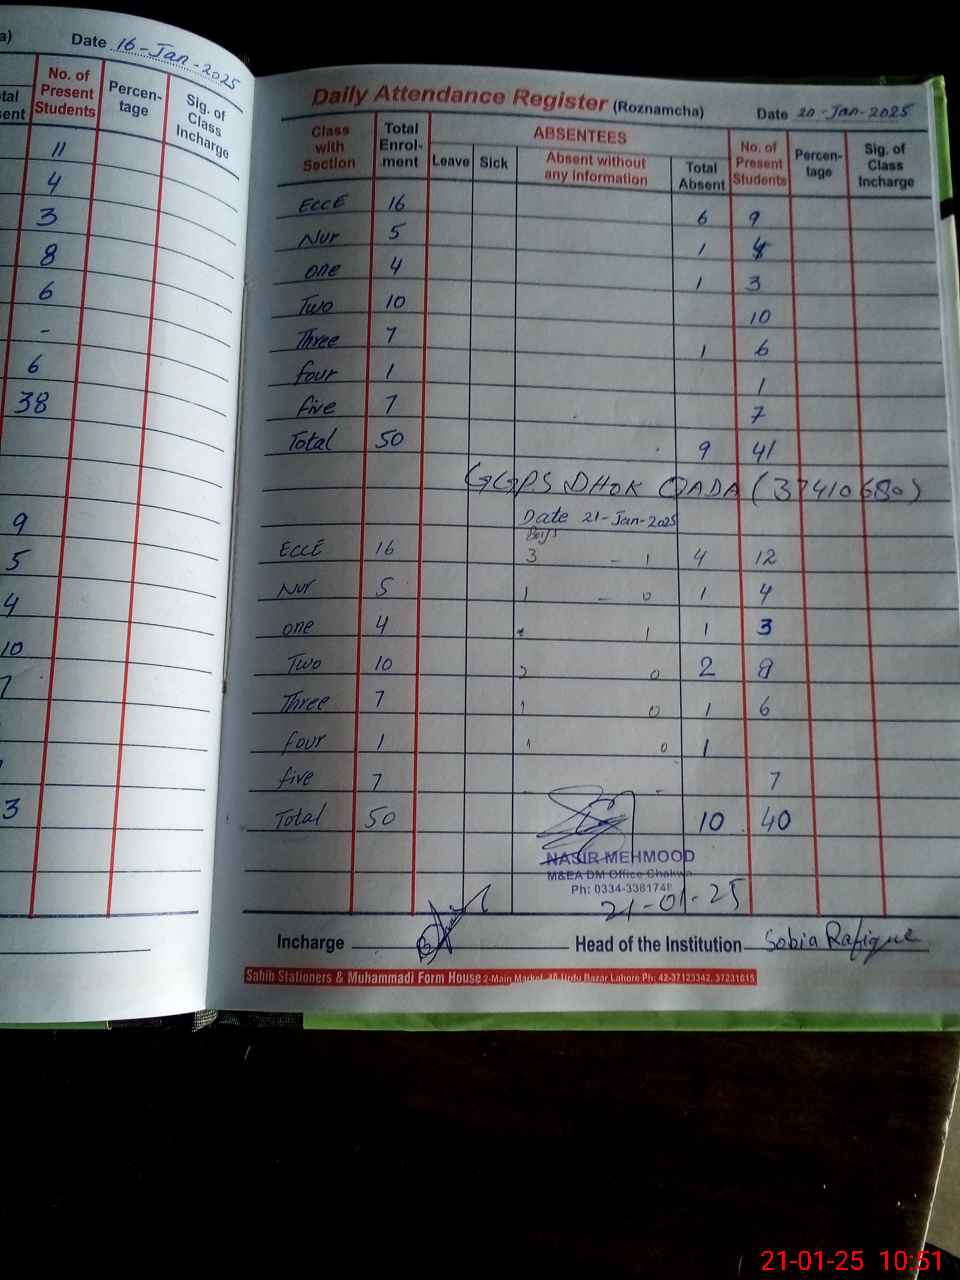 a) Date 16-Jan-2025
No. of Present Students Percen-tage Sig. of Class Incharge
11
4
3
8
6
-
6
38
9
5
4
10
7
3
Daily Attendance Register (Roznamcha) Date 20-Jan-2025
Class with Section Total Enrol-ment ABSENTEES No. of Present Students Percen-tage Sig. of Class Incharge
Leave Sick Absent without any information Total Absent
ECCE 16 6 9
Nur 5 1 4
one 4 1 3
Two 10 10
Three 7 1 6
four 1 1
five 7 7
Total 50 9 41
GGPS DHOK QADA (37410680)
Date 21-Jan-2025
Boys
ECCE 16 3 - 1 4 12
Nur 5 1 - 0 1 4
one 4 1 1 3
Two 10 2 0 2 8
Three 7 1 0 1 6
four 1 1 0 1
five 7 - - 7
Total 50 10 40
NASIR MEHMOOD
M&EA DM Office Chakwal
Ph: 0334-3381748
21-01-25
Incharge Head of the Institution Sobia Rafique
Sahib Stationers & Muhammadi Form House 2-Main Market, 40 Urdu Bazar Lahore Ph: 42-37123342, 37231615
21-01-25 10:51